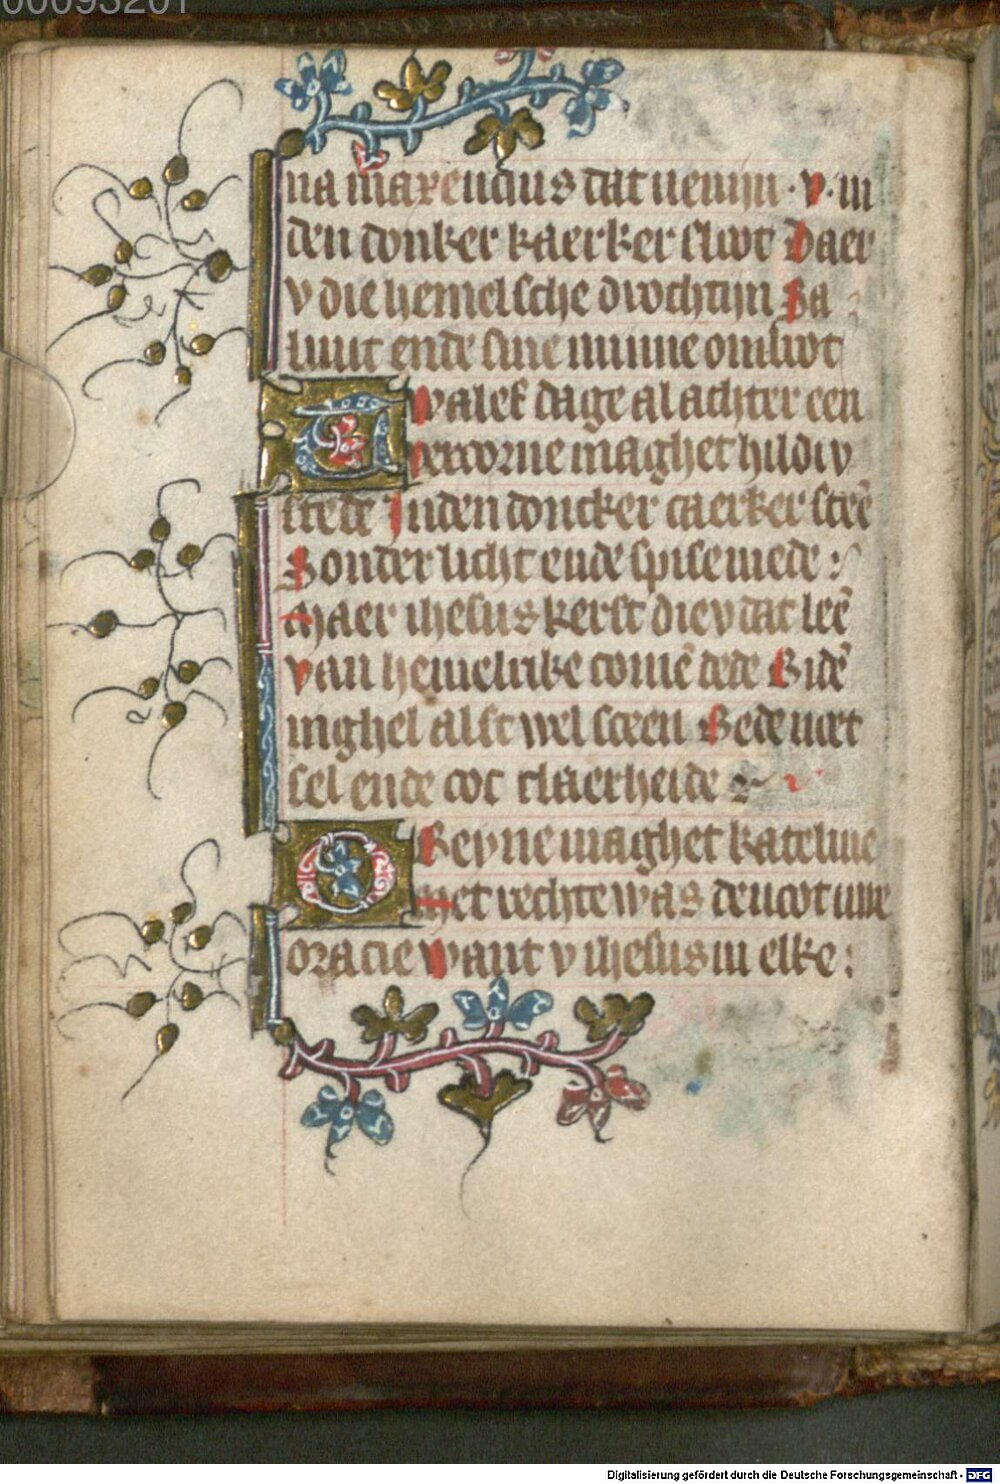 00093201
na maxencius dat uenijn · v · in
den donker kaerker sloot Daer
v die hemelsche drochtijn Sa
luut ende sine minne ontsloot
Twalef dage al achter een
vercorne maghet hildiv
stede Inden doncker caerker steē
Sonder licht ende spise mede :
Maer ihesus kerst die v dat leē
van hemelrike comē dede Bidē
inghel alst wel sceen Bede uoet
sel ende oot claerheide
O Reyne maghet kateline
Met rechte was denoot uwe
oracie want v ihesus in elke :
Digitalisierung gefördert durch die Deutsche Forschungsgemeinschaft - DFG